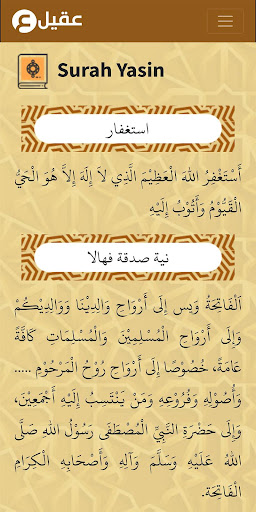 عقيل
Surah Yasin
استغفار
أَسْتَغْفِرُ اللهَ الْعَظِيْمَ الَّذِي لاَ إِلَهَ إِلاَّ هُوَ الْحَيُّ
الْقَيُّوْمُ وَأَتُوْبُ إِلَيْهِ
نية صدقة فهالا
اَلْفَاتِحَةُ وَيس إِلَى أَرْوَاحِ وَالِدِيْنَا وَوَالِدِيْكُمْ
وَإِلَى أَرْوَاحِ الْمُسْلِمِيْنَ وَالْمُسْلِمَاتِ كَافَّةً
عَامَةً، خُصُوْصًا إِلَى أَرْوَاحِ رُوْحُ الْمَرْحُوْمِ .....
وَأُصُوْلِهِ وَفُرُوْعِهِ وَمَنْ يَنْتَسِبُ إِلَيْهِ أَجْمَعِيْنَ،
وَإِلَى حَضْرَةِ النَّبِيِّ الْمُصْطَفَى رَسُوْلُ اللهِ صَلَّى
اللهُ عَلَيْهِ وَسَلَّمَ وَآلِهِ وَأَصْحَابِهِ الْكِرَامِ
الْفَاتِحَة.